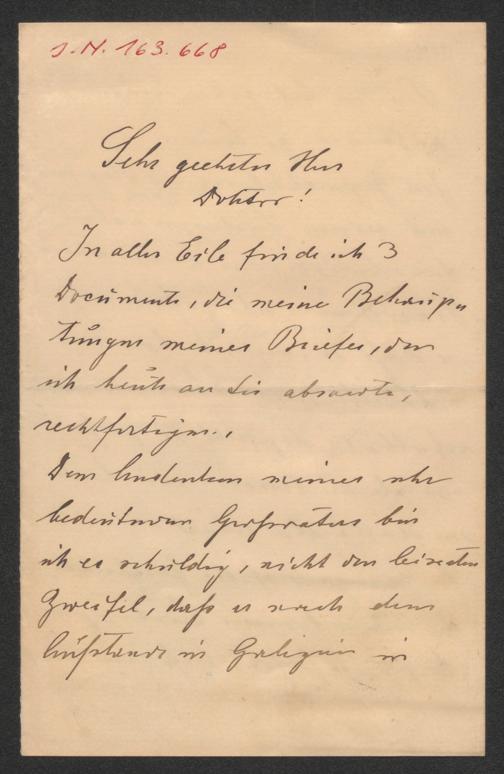 J.N. 163.668
Sehr geehrter Herr
Doktor!
In aller Eile finde ich 3
Documente, die meine Behaup-
tungen meines Briefes, den
ich heute an Sie absandte,
rechtfertigen.
Dem Andenken meines sehr
bedeutenden Großvaters bin
ich es schuldig, nicht den leisesten
Zweifel, daß er nach dem
Aufstande in Galizien in